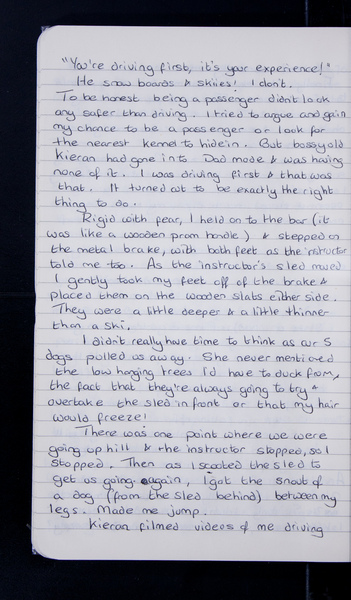 "You're driving first, it's your experience!"
He snow boards & skiies! I don't.
To be honest being a passenger didn't look
any safer than driving. I tried to argue and gain
my chance to be a passenger or look for
the nearest kennel to hide in. But bossy old
Kieran had gone into Dad mode & was having
none of it. I was driving first & that was
that. It turned out to be exactly the right
thing to do.
Rigid with fear, I held on to the bar (it
was like a wooden pram handle) & stepped on
the metal brake, with both feet as the instructor
told me too. As the instructor's sled moved
I gently took my feet off of the brake &
placed them on the wooden slats either side.
They were a little deeper & a little thinner
than a ski.
I didn't really have time to think as our 5
dogs pulled us away. She never mentioned
the low hanging trees I'd have to duck from,
the fact that they're always going to try &
overtake the sled in front or that my hair
would freeze!
There was one point where we were
going up hill & the instructor stopped, so I
stopped. Then as I scooted the sled to
get us going again, I got the snout of
a dog (from the sled behind) between my
legs. Made me jump.
Kieran filmed videos of me driving